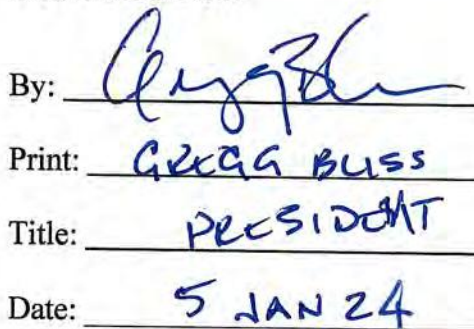 By:
Print: GREGG BLISS
Title: PRESIDENT
Date: 5 JAN 24